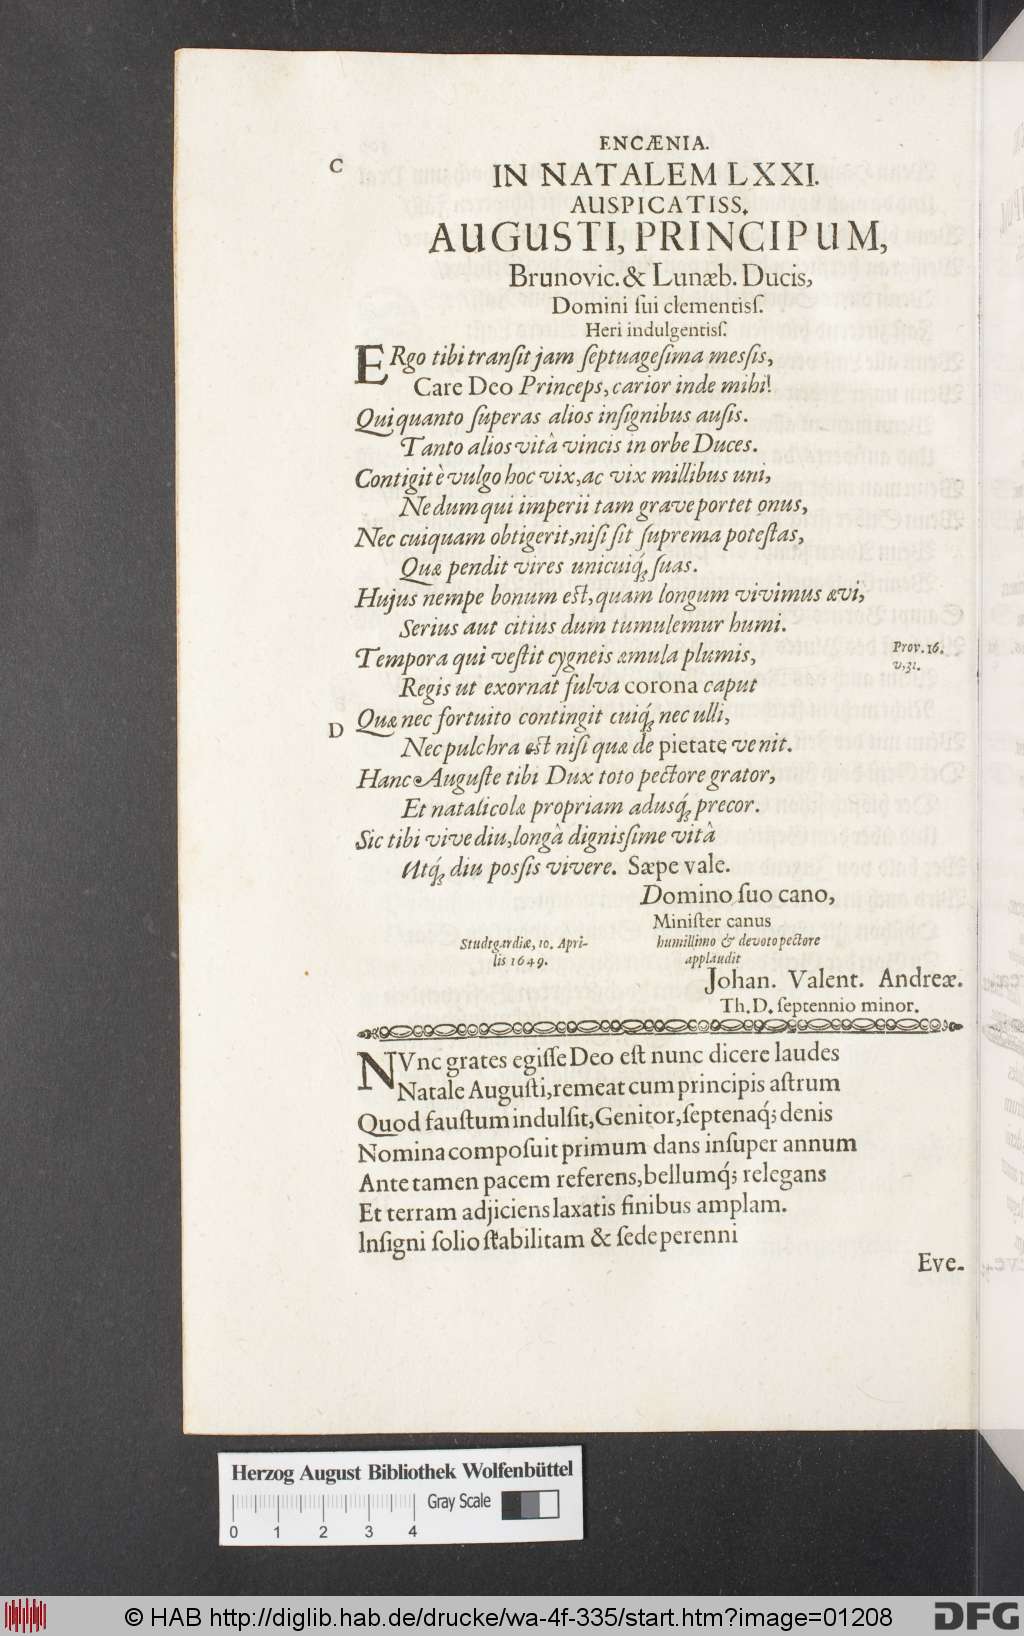 ENCÆNIA.
C
IN NATALEM LXXI.
AUSPICATISS.
AUGUSTI, PRINCIPUM,
Brunovic. & Lunæb. Ducis,
Domini ſui clementiſſ.
Heri indulgentiſſ.
ERgo tibi tranſit jam ſeptuageſima meſsis,
Care Deo Princeps, carior inde mihi!
Qui quanto ſuperas alios inſignibus auſis.
Tanto alios vitâ vincis in orbe Duces.
Contigit è vulgo hoc vix, ac vix millibus uni,
Ne dum qui imperii tam grave portet onus,
Nec cuiquam obtigerit, niſi ſit ſuprema poteſtas,
Quæ pendit vires unicuiq́; ſuas.
Hujus nempe bonum eſt, quàm longum vivimus ævi,
Serius aut citius dum tumulemur humi.
Tempora qui veſtit cygneis æmula plumis,
Prov. 16.
v. 31.
Regis ut exornat fulva corona caput
D
Quæ nec fortuito contingit cuiq́; nec ulli,
Nec pulchra eſt niſi quæ de pietate venit.
Hanc Auguſte tibi Dux toto pectore grator,
Et natalicolæ propriam adusq́; precor.
Sic tibi vive diu, longâ digniſsime vitâ
Utq́; diu poſsis vivere. Sæpe vale.
Domino ſuo cano,
Miniſter canus
Studtgardiæ, 10. Apri-
lis 1649.
humillimo & devoto pectore
applaudit
Johan. Valent. Andreæ.
Th. D. ſeptennio minor.
NVnc grates egiſſe Deo eſt nunc dicere laudes
Natale Auguſti, remeat cum principis aſtrum
Quod fauſtum indulſit, Genitor, ſeptenaq́; denis
Nomina compoſuit primum dans inſuper annum
Ante tamen pacem referens, bellumq́; relegans
Et terram adjiciens laxatis finibus amplam.
Inſigni ſolio ſtabilitam & ſede perenni
Eve-
Herzog August Bibliothek Wolfenbüttel
Gray Scale
0 1 2 3 4
© HAB http://diglib.hab.de/drucke/wa-4f-335/start.htm?image=01208
DFG